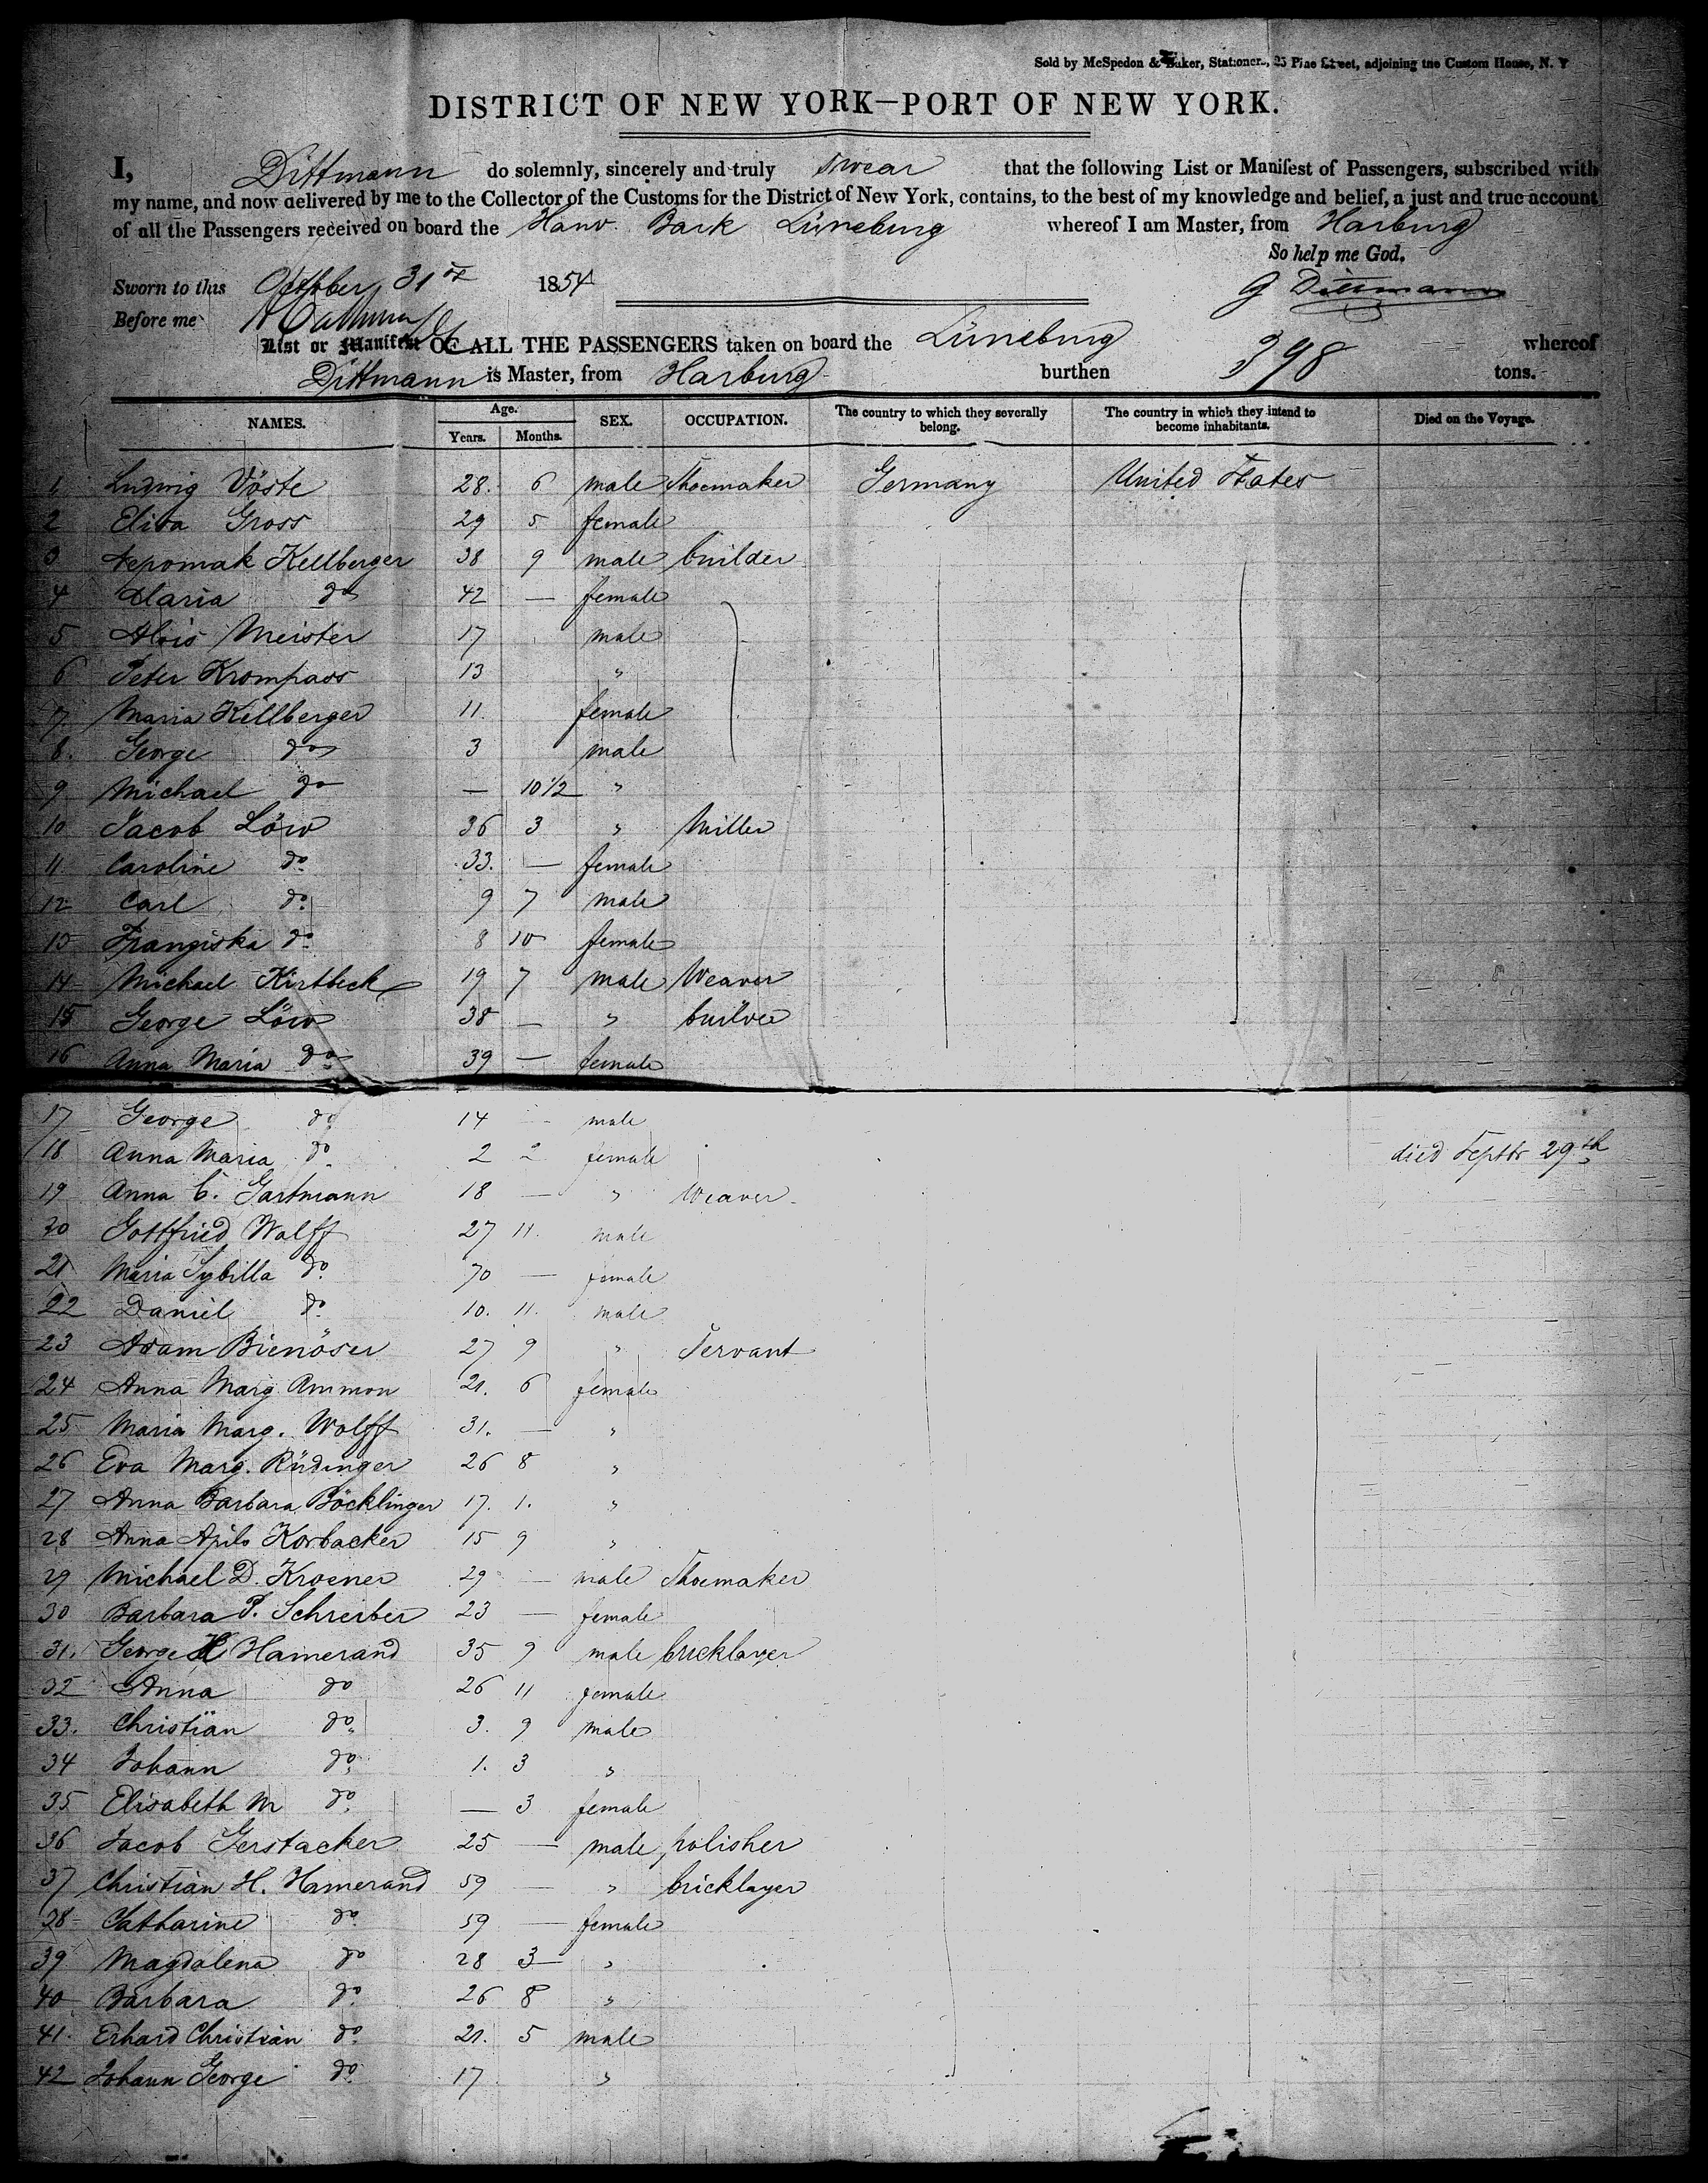 Sold by McSpedon & Baker, Stationers, 25 Pine Street, adjoining the Custom House, N. Y
DISTRICT OF NEW YORK—PORT OF NEW YORK.
I, Dittmann do solemnly, sincerely and truly swear that the following List or Manifest of Passengers, subscribed with
my name, and now delivered by me to the Collector of the Customs for the District of New York, contains, to the best of my knowledge and belief, a just and true account
of all the Passengers received on board the Hanv. Bark Lüneburg whereof I am Master, from Harburg
So help me God.
Sworn to this October 31st 1854
G Dittmann
Before me
List or Manifest OF ALL THE PASSENGERS taken on board the Lüneburg whereof
Dittmann is Master, from Harburg burthen 398 tons.
NAMES. Age. Years. Months. SEX. OCCUPATION. The country to which they severally belong. The country in which they intend to become inhabitants. Died on the Voyage.
1 Ludwig Vöste 28. 6 male Shoemaker Germany United States
2 Elisa Gross 29 5 female
3 Nepomak Kellberger 38 9 male builder
4 Maria do 42 — female
5 Alois Meister 17 male
6 Peter Krompass 13 "
7 Maria Kellberger 11. female
8. George do 3 male
9 Michael do — 10 1/2 "
10 Jacob Löw 36 3 " Miller
11 Caroline do 33. — female
12 Carl do 9 7 male
13 Franziska do 8 10 female
14 Michael Kirtbeck 19 7 male Weaver
15 George Löw 38 — " builder
16 Anna Maria do 39 — female
17 George do 14 — male
18 Anna Maria do 2 2 female died Septbr 29th
19 Anna C. Gartmann 18 — " Weaver
20 Gottfried Wolff 27 11. male
21 Maria Sybilla do 70 — female
22 Daniel do 10. 11. male
23 Adam Bienöser 27 9 " Servant
24 Anna Marg Ammon 21. 6 female
25 Maria Marg. Wolff 31. — "
26 Eva Marg. Rüdinger 26 8 "
27 Anna Barbara Böcklinger 17. 1. "
28 Anna Korbacker 15 9 "
29 Michael D. Kroener 29 — male Shoemaker
30 Barbara P. Schreiber 23 — female
31. George H Hamerand 35 9 male bricklayer
32 Anna do 26 11 female
33. Christian do 3. 9 male
34 Johann do 1. 3 "
35 Elisabeth M do — 3 female
36 Jacob Gerstacker 25 — male polisher
37 Christian H. Hamerand 59 — " bricklayer
38 Catharine do 59 — female
39 Magdalena do 28 3 "
40 Barbara do 26 8 "
41. Erhard Christian do 21. 5 male
42 Johann George do 17 "